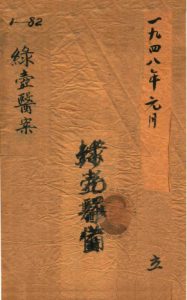 一九四八年元月
綠壺醫
立
1—82
綠壺醫案